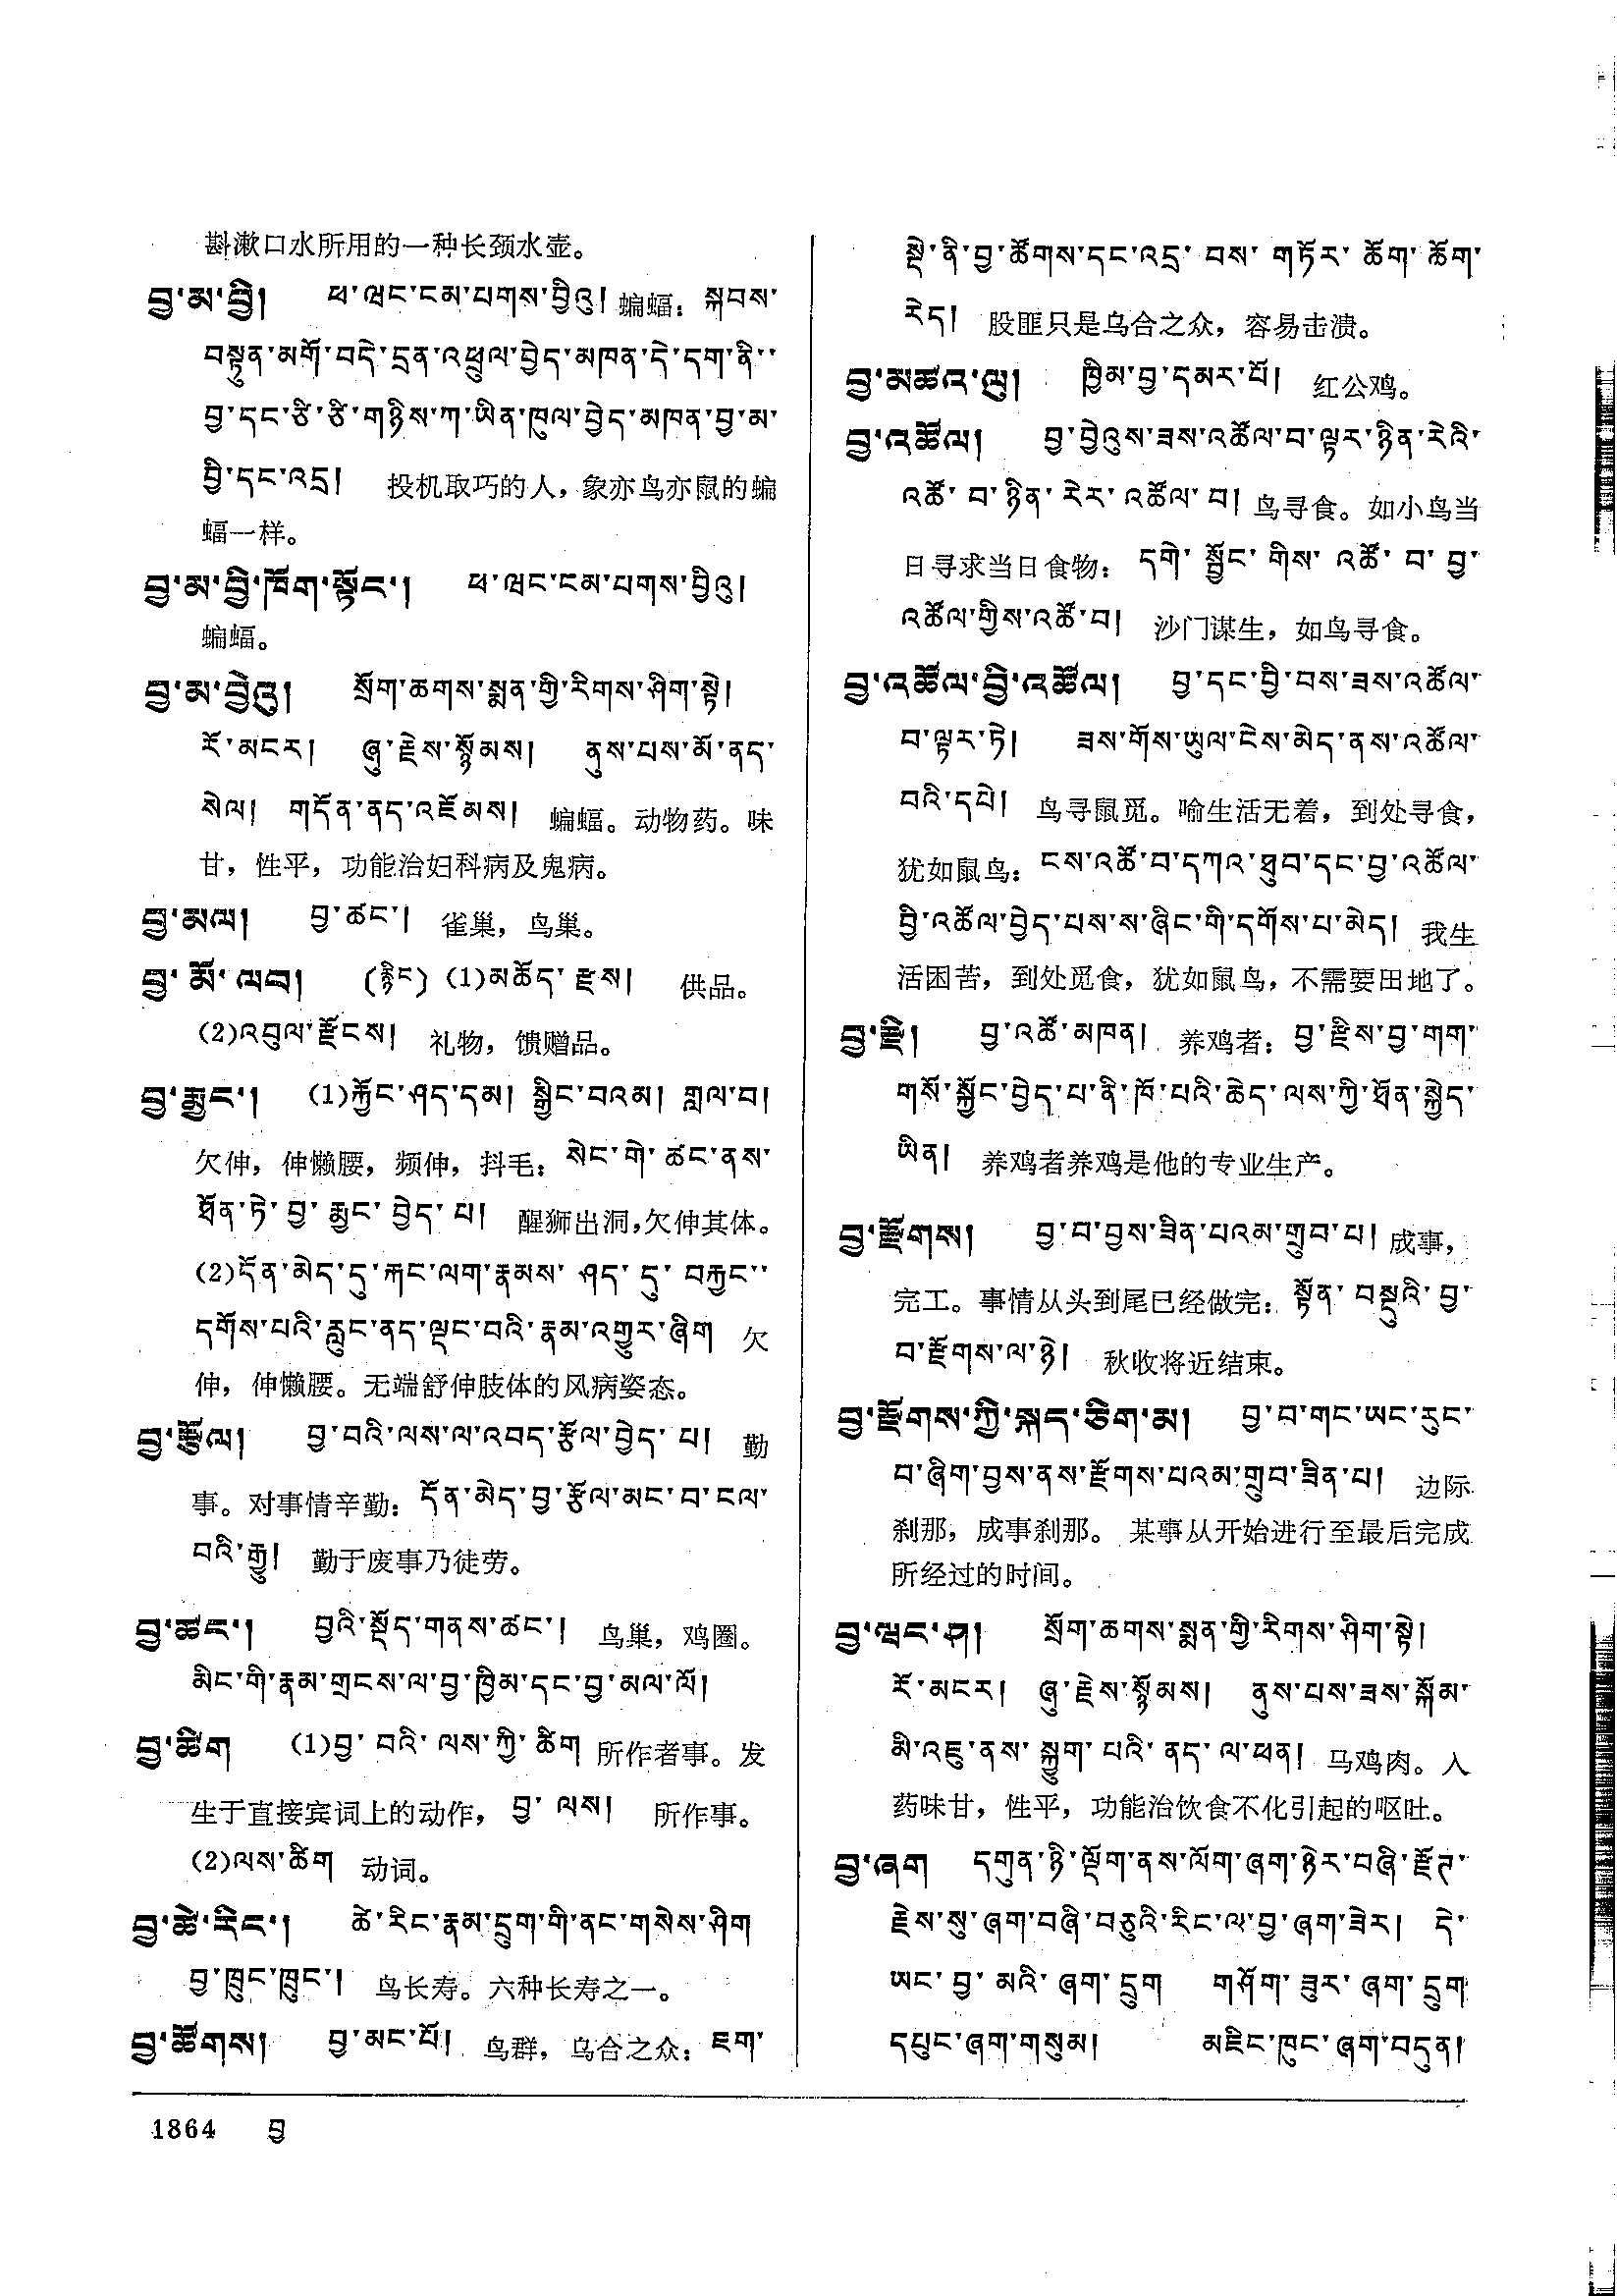 斟漱口水所用的一种长颈水壶。
བྱ་མ་བྱི། ཕ་ཝང་ངམ་པགས་བྱིའུ། 蝙蝠：སྐབས་
བསྟུན་མགོ་བདེ་དྲན་འཕྲུལ་བྱེད་མཁན་དེ་དག་ནི་་
བྱ་དང་ཙི་ཙི་གཉིས་ཀ་ཡིན་ཁུལ་བྱེད་མཁན་བྱ་མ་
བྱི་དང་འདྲ། 投机取巧的人，象亦鸟亦鼠的蝙
蝠一样。
བྱ་མ་བྱི་ཁོག་སྟོང་། ཕ་ཝང་ངམ་པགས་བྱིའུ།
蝙蝠。
བྱ་མ་བྱེའུ། སྲོག་ཆགས་སྨན་གྱི་རིགས་ཤིག་སྟེ།
རོ་མངར། ཞུ་རྗེས་སྙོམས། ནུས་པས་མོ་ནད་
སེལ། གདོན་ནད་འཇོམས། 蝙蝠。动物药。味
甘，性平，功能治妇科病及鬼病。
བྱ་མལ། བྱ་ཚང་། 雀巢，鸟巢。
བྱ་མོ་ལབ། (རྙིང) (1)མཆོད་རྫས། 供品。
(2)འབུལ་རྫོངས། 礼物，馈赠品。
བྱ་རྨྱང་། (1)རྐྱོང་ཤད་དམ། སྒྱིང་བའམ། གླལ་བ།
欠伸，伸懒腰，频伸，抖毛：སེང་གེ་ཚང་ནས་
ཐོན་ཏེ་བྱ་རྨྱང་བྱེད་པ། 醒狮出洞，欠伸其体。
(2)དོན་མེད་དུ་རྐང་ལག་རྣམས་ཤད་དུ་བརྐྱང་་
དགོས་པའི་རླུང་ནད་ལྡང་བའི་རྣམ་འགྱུར་ཞིག 欠
伸，伸懒腰。无端舒伸肢体的风病姿态。
བྱ་རྩོལ། བྱ་བའི་ལས་ལ་འབད་རྩོལ་བྱེད་པ། 勤
事。对事情辛勤：དོན་མེད་བྱ་རྩོལ་མང་བ་ངལ་
བའི་རྒྱུ། 勤于废事乃徒劳。
བྱ་ཚང་། བྱའི་སྡོད་གནས་ཚང་། 鸟巢，鸡圈。
མིང་གི་རྣམ་གྲངས་ལ་བྱ་ཁྱིམ་དང་བྱ་མལ་ལོ།
བྱ་ཚིག (1)བྱ་བའི་ལས་ཀྱི་ཚིག 所作者事。发
生于直接宾词上的动作，བྱ་ལས། 所作事。
(2)ལས་ཚིག 动词。
བྱ་ཚེ་རིང་། ཚེ་རིང་རྣམ་དྲུག་གི་ནང་གསེས་ཤིག
བྱ་ཁྲུང་ཁྲུང་། 鸟长寿。六种长寿之一。
བྱ་ཚོགས། བྱ་མང་པོ། 鸟群，乌合之众：ཇག་
སྡེ་ནི་བྱ་ཚོགས་དང་འདྲ་བས་གཏོར་ཚོག་ཚོག་
རེད། 股匪只是乌合之众，容易击溃。
བྱ་མཚའ་ལུ། ཁྱིམ་བྱ་དམར་པོ། 红公鸡。
བྱ་འཚོལ། བྱ་བྱེའུས་ཟས་འཚོལ་བ་ལྟར་ཉིན་རེའི་
འཚོ་བ་ཉིན་རེར་འཚོལ་བ། 鸟寻食。如小鸟当
日寻求当日食物：དགེ་སྦྱོང་གིས་འཚོ་བ་བྱ་
འཚོལ་གྱིས་འཚོ་བ། 沙门谋生，如鸟寻食。
བྱ་འཚོལ་བྱི་འཚོལ། བྱ་དང་བྱི་བས་ཟས་འཚོལ་
བ་ལྟར་ཏེ། ཟས་གོས་ཡུལ་ངེས་མེད་ནས་འཚོལ་
བའི་དཔེ། 鸟寻鼠觅。喻生活无着，到处寻食，
犹如鼠鸟：ངས་འཚོ་བ་དཀའ་ཐུབ་དང་བྱ་འཚོལ་
བྱི་འཚོལ་བྱེད་པས་ས་ཞིང་གི་དགོས་པ་མེད། 我生
活困苦，到处觅食，犹如鼠鸟，不需要田地了。
བྱ་རྫི། བྱ་འཚོ་མཁན། 养鸡者：བྱ་རྫིས་བྱ་གག་
གསོ་སྐྱོང་བྱེད་པ་ནི་ཁོ་པའི་ཆེད་ལས་ཀྱི་ཐོན་སྐྱེད་
ཡིན། 养鸡者养鸡是他的专业生产。
བྱ་རྫོགས། བྱ་བ་བྱས་ཟིན་པའམ་གྲུབ་པ། 成事，
完工。事情从头到尾已经做完：སྟོན་བསྡུའི་བྱ་
བ་རྫོགས་ལ་ཉེ། 秋收将近结束。
བྱ་རྫོགས་ཀྱི་སྐད་ཅིག་མ། བྱ་བ་གང་ཡང་རུང་
བ་ཞིག་བྱས་ནས་རྫོགས་པའམ་གྲུབ་ཟིན་པ། 边际
刹那，成事刹那。某事从开始进行至最后完成
所经过的时间。
བྱ་ཝང་ཤ། སྲོག་ཆགས་སྨན་གྱི་རིགས་ཤིག་སྟེ།
རོ་མངར། ཞུ་རྗེས་སྙོམས། ནུས་པས་ཟས་སྐོམ་
མི་འཇུ་ནས་སྐྱུག་པའི་ནད་ལ་ཕན། 马鸡肉。入
药味甘，性平，功能治饮食不化引起的呕吐。
བྱ་ཞག དགུན་ཉི་ལྡོག་ནས་ལོག་ཞག་ཉེར་བཞི་རྫོཊ་
རྗེས་སུ་ཞག་བཞི་བཅུའི་རིང་ལ་བྱ་ཞག་ཟེར། དེ་
ཡང་བྱ་མའི་ཞག་དྲུག གཤོག་ཟུར་ཞག་དྲུག
དཔུང་ཞག་གསུམ། མཇིང་ཁུང་ཞག་བདུན།
1864 བྱ